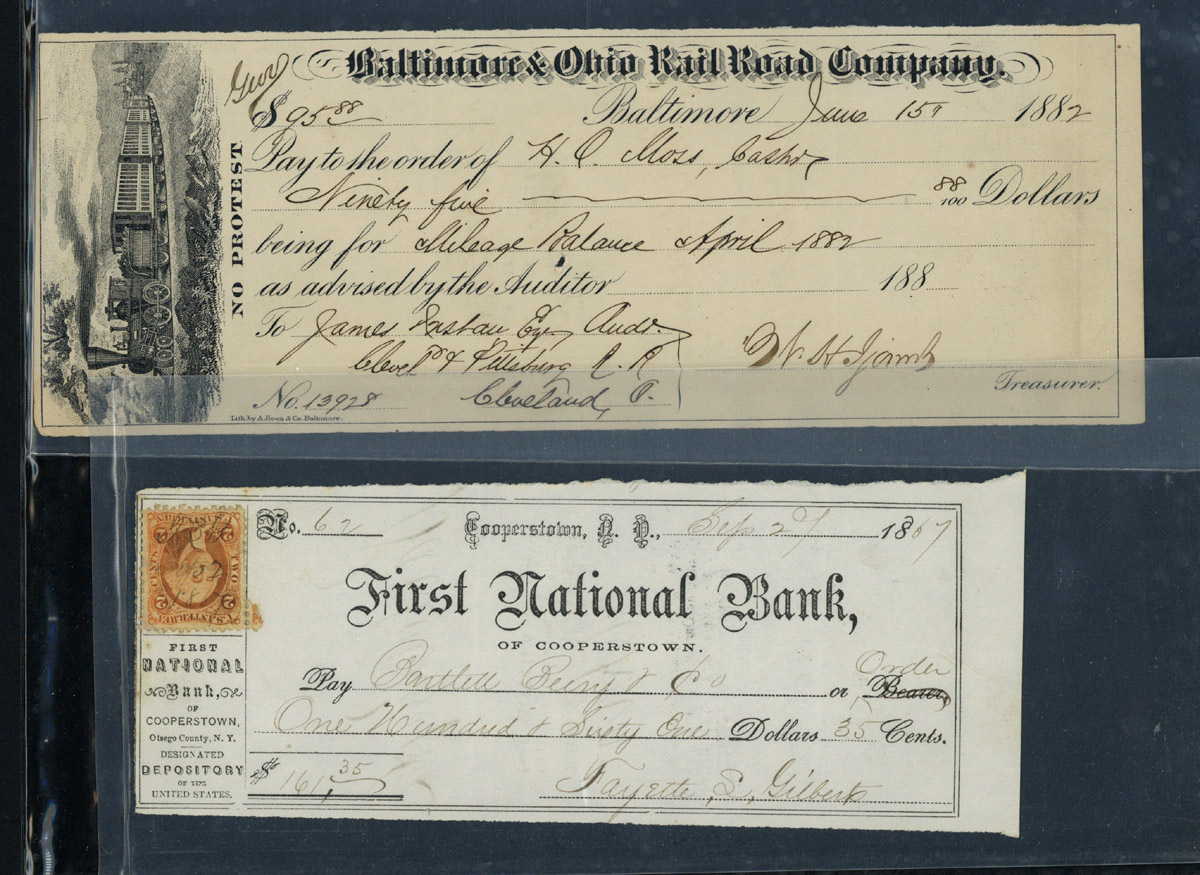 Baltimore & Ohio Rail Road Company.
$ 95 88 Baltimore June 15" 1882
Pay to the order of H. C. Moss, Cashr
Ninety five 88/100 Dollars
being for Mileage Balance April 1882
as advised by the Auditor 188
To James Esqr, Audr.
Cleveld & Pittsburg R. R
Cleveland, O.
W. H. Ijams
Treasurer.
No. 13928
Lith. by A. Hoen & Co. Baltimore.
NO PROTEST
No. 62 Cooperstown, N. Y., Sep 27 1867
First National Bank,
OF COOPERSTOWN.
Pay Bartlett & Co or Bearer, Order
One Hundred & Sixty One Dollars 35 Cents.
$ 161,35
Fayette L, Gilbert
U.S. INTER. REV.
TWO
CENTS
2
2
FIRST
NATIONAL
Bank,
OF
COOPERSTOWN,
Otsego County, N. Y.
DESIGNATED
DEPOSITORY
OF THE
UNITED STATES.